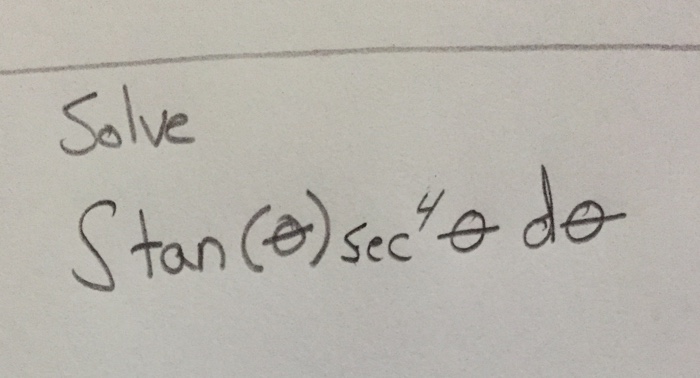 Solve
∫tan(θ)sec⁴θ dθ